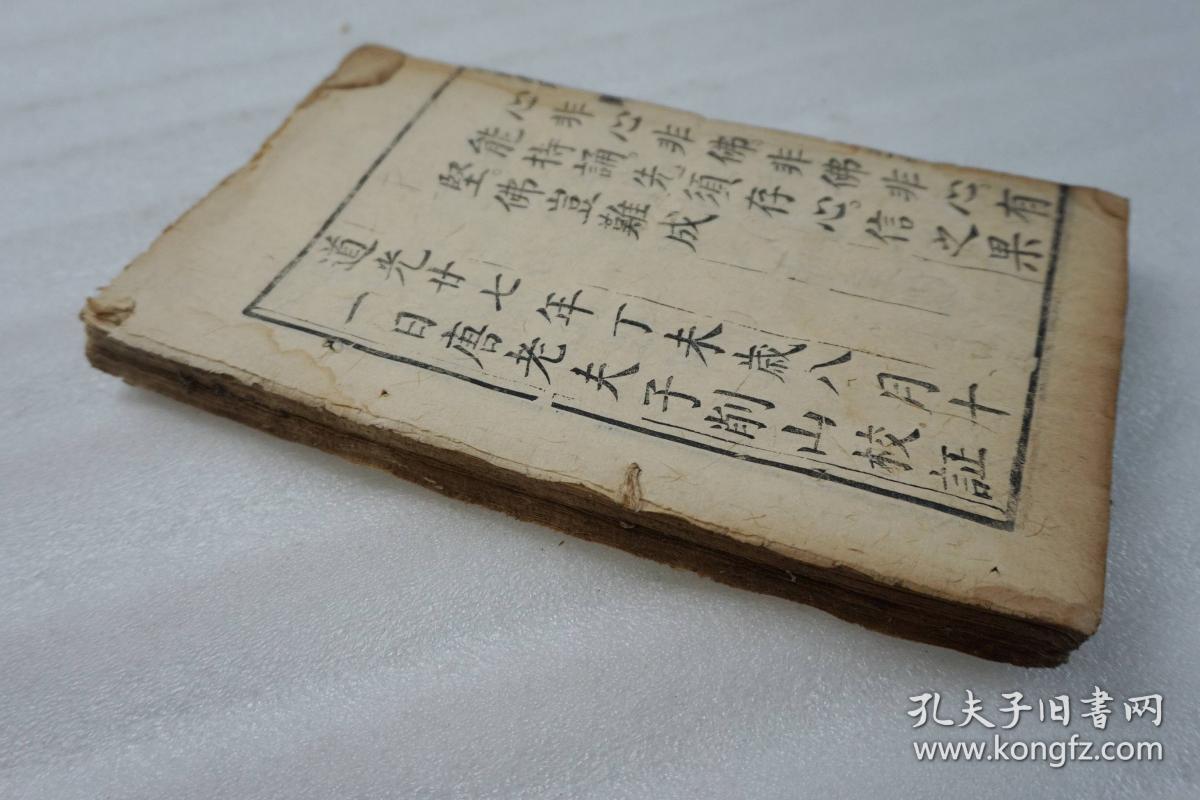 心非心。非佛。非佛非心。有
能持誦。先須存心。信之果
堅。佛豈難成
道光廿七年丁未歲八月十
一日唐老夫子削山校証
孔夫子旧書网
www.kongfz.com